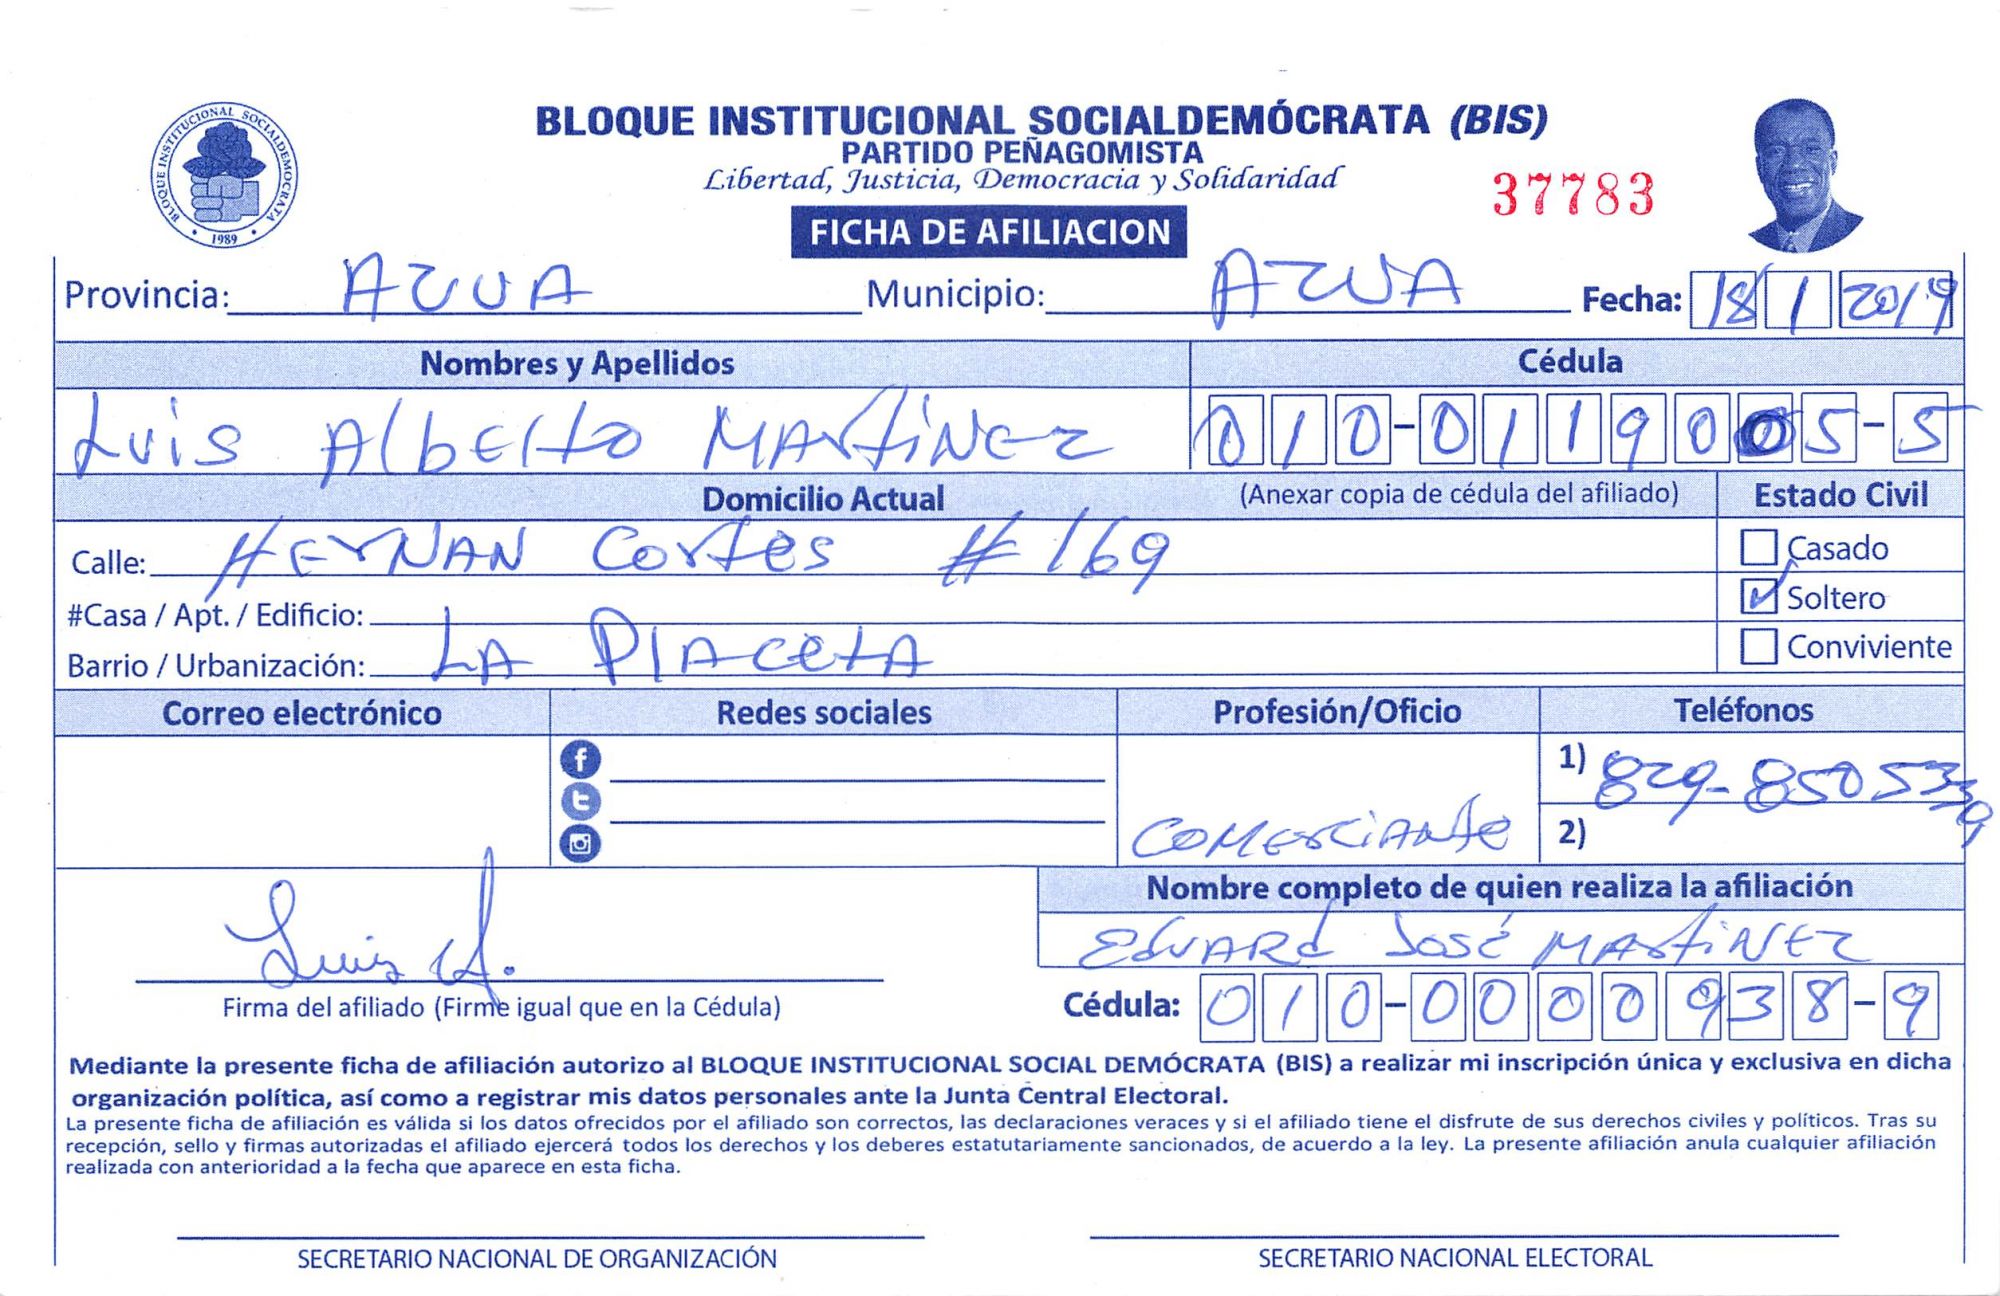 BLOQUE INSTITUCIONAL SOCIALDEMÓCRATA (BIS)
PARTIDO PEÑAGOMISTA
Libertad, Justicia, Democracia y Solidaridad
37783
BLOQUE INSTITUCIONAL SOCIALDEMOCRATA
1989
FICHA DE AFILIACION
Provincia: AZUA Municipio: AZUA Fecha: 18 1 2019
Nombres y Apellidos Cédula
Luis Alberto MARtiNez 010-0119005-5
Domicilio Actual (Anexar copia de cédula del afiliado) Estado Civil
Calle: HERNAN Cortes #169 Casado
#Casa / Apt. / Edificio: Soltero
Barrio / Urbanización: LA PlAcetA Conviviente
Correo electrónico Redes sociales Profesión/Oficio Teléfonos
1) 829-8505339
COMERCiANte 2)
Nombre completo de quien realiza la afiliación
EdUARd José MARtiNEZ
Luis A.
Firma del afiliado (Firme igual que en la Cédula) Cédula: 010-0000938-9
Mediante la presente ficha de afiliación autorizo al BLOQUE INSTITUCIONAL SOCIAL DEMÓCRATA (BIS) a realizar mi inscripción única y exclusiva en dicha
organización política, así como a registrar mis datos personales ante la Junta Central Electoral.
La presente ficha de afiliación es válida si los datos ofrecidos por el afiliado son correctos, las declaraciones veraces y si el afiliado tiene el disfrute de sus derechos civiles y políticos. Tras su
recepción, sello y firmas autorizadas el afiliado ejercerá todos los derechos y los deberes estatutariamente sancionados, de acuerdo a la ley. La presente afiliación anula cualquier afiliación
realizada con anterioridad a la fecha que aparece en esta ficha.
SECRETARIO NACIONAL DE ORGANIZACIÓN SECRETARIO NACIONAL ELECTORAL